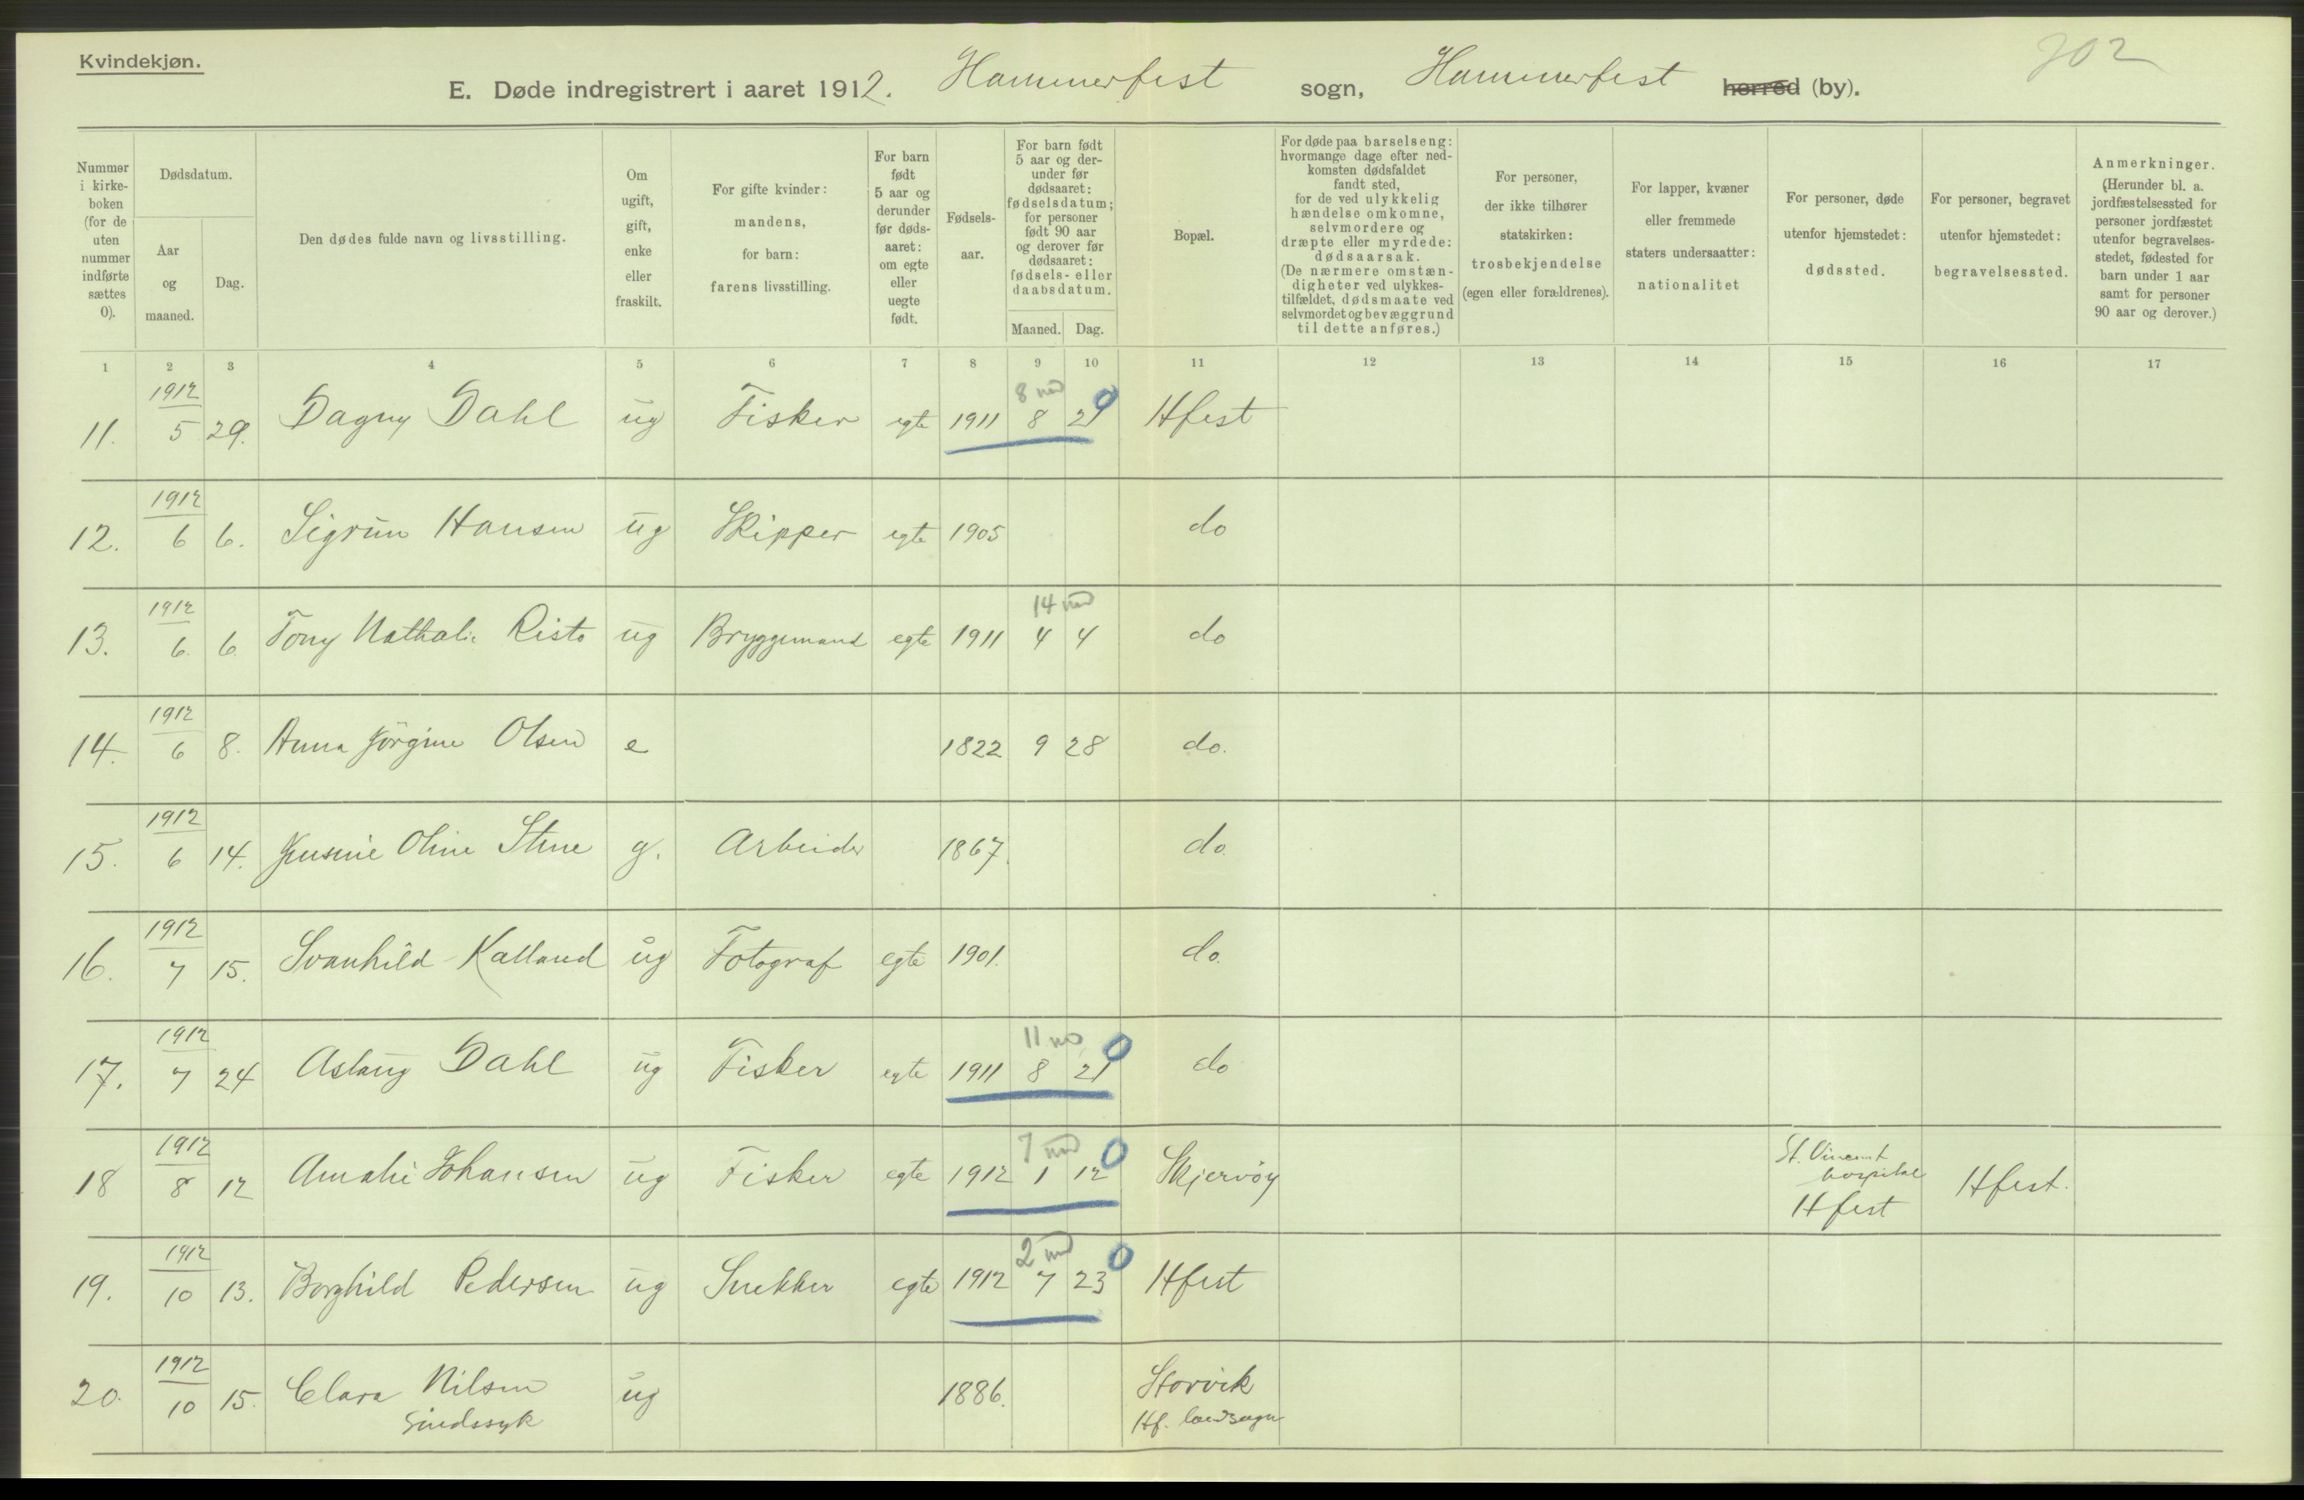 Kvindekjøn.
302
E. Døde indregistrert i aaret 1912. Hammerfest sogn, Hammerfest herred (by).
Nummer i kirke-
boken
(for de
uten
nummer
indførte
sættes
0).
Dødsdatum.
Aar
og
maaned.
Dag.
Den dødes fulde navn og livsstilling.
Om
ugift,
gift,
enke
eller
fraskilt.
For gifte kvinder:
mandens,
for barn:
farens livsstilling.
For barn
født
5 aar og
derunder
før døds-
aaret:
om egte
eller
uegte
født.
Fødsels-
aar.
For barn født
5 aar og der-
under før
dødsaaret:
fødselsdatum;
for personer
født 90 aar
og derover før
dødsaaret:
fødsels- eller
daabsdatum.
Maaned. Dag.
Bopæl.
For døde paa barselseng:
hvormange dage efter ned-
komsten dødsfaldet
fandt sted,
for de ved ulykkelig
hændelse omkomne,
selvmordere og
dræpte eller myrdede:
dødsaarsak.
(De nærmere omstæn-
digheter ved ulykkes-
tilfældet, dødsmaate ved
selvmordet og bevæggrund
til dette anføres.)
For personer,
der ikke tilhører
statskirken:
trosbekjendelse
(egen eller forældrenes).
For lapper, kvæner
eller fremmede
staters undersaatter:
nationalitet
For personer, døde
utenfor hjemstedet:
dødssted.
For personer, begravet
utenfor hjemstedet:
begravelsessted.
Anmerkninger.
(Herunder bl. a.
jordfæstelsessted for
personer jordfæstet
utenfor begravelses-
stedet, fødested for
barn under 1 aar
samt for personer
90 aar og derover.)
1 2 3 4 5 6 7 8 9 10 11 12 13 14 15 16 17
1912 8 md 0
11. 5 29. Dagny Dahl ug Fisker egte 1911 8 21 Hfest
1912
12. 6 6. Sigrun Hansen ug Skipper egte 1905 do
1912 14 md
13. 6 6 Tony Nathalie Risto ug Bryggemand egte 1911 4 4 do
1912
14. 6 8. Anna Jörgine Olsen e 1822 9 28 do.
1912
15. 6 14. Jensine Oline Stene g. Arbeider 1867. do.
1912
16. 7 15. Svanhild Kalland ug Fotograf egte 1901. do.
1912 11 md 0
17. 7 24 Aslaug Dahl ug Fisker egte 1911 8 21 do
1912 7 md 0 St. Vincent
hospital
18 8 12 Amalie Johansen ug Fisker egte 1912 1 12 Skjervöy Hfest Hfest.
1912 2 md 0
19. 10 13. Borghild Pedersen ug Snekker egte 1912 7 23 Hfest
1912
20. 10 15. Clara Nilsen ug 1886. Storvik
Sindssyk Hf. landsogn